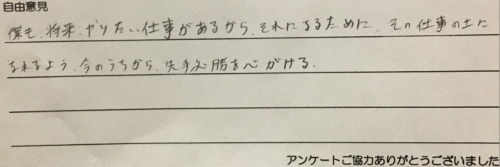 自由意見
僕も、将来、やりたい仕事があるから、それになるために、その仕事の上に
なれるよう、今のうちから、先手必勝を心がける。
アンケートご協力ありがとうございました